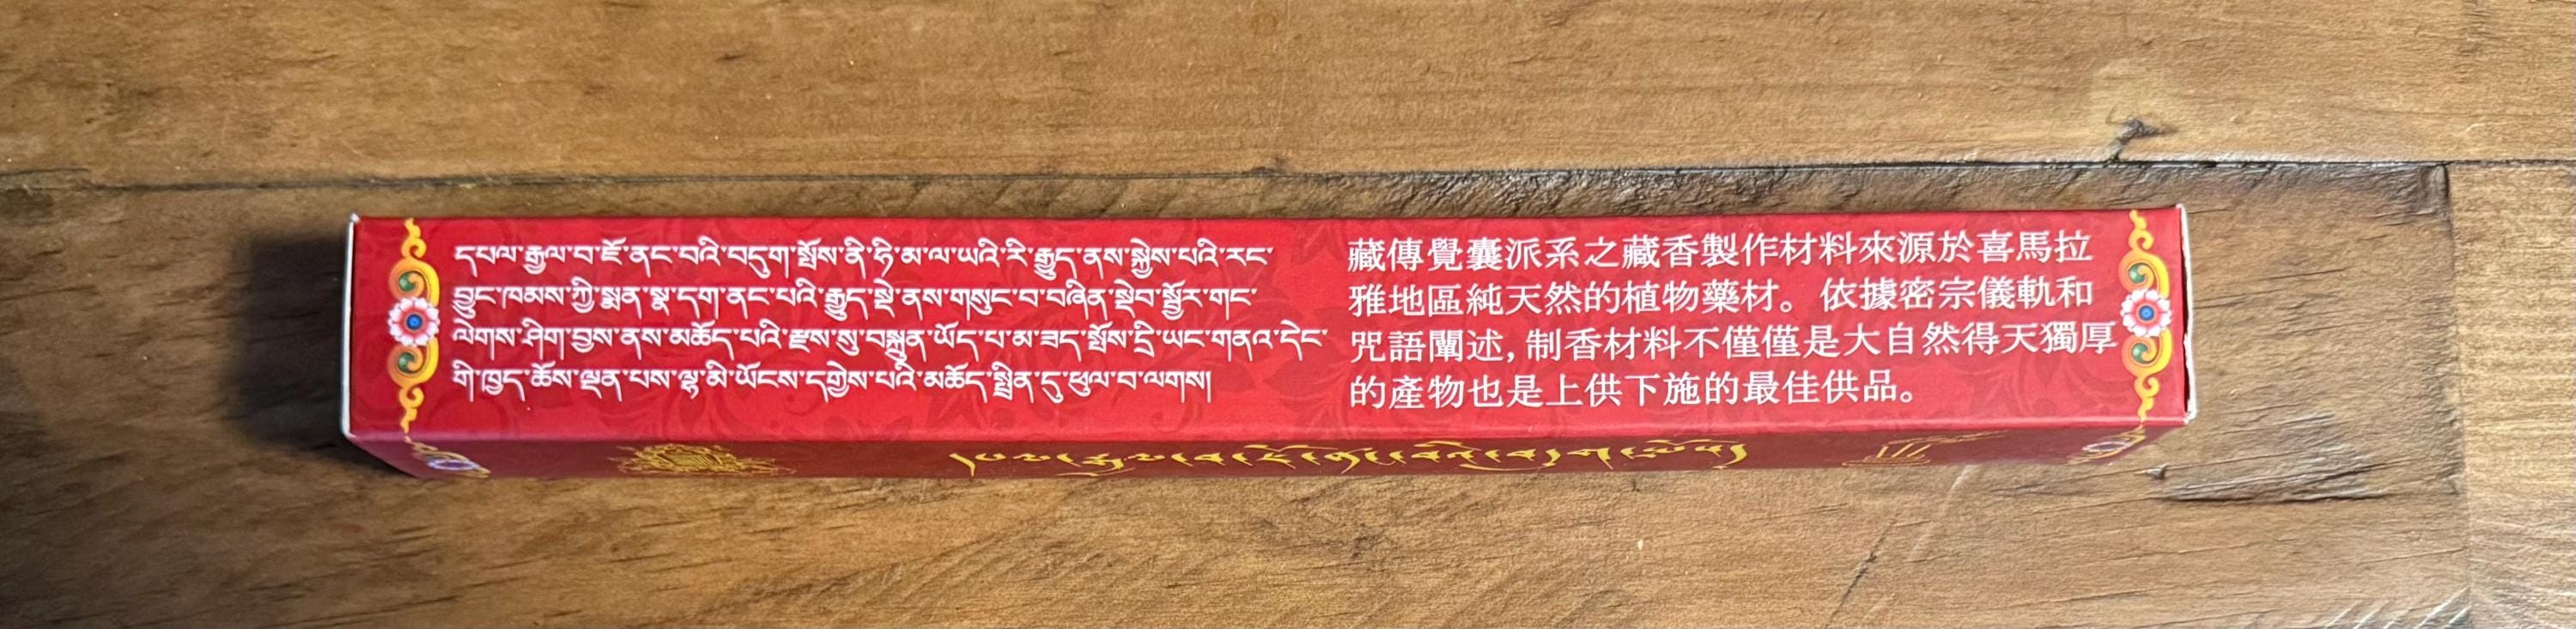 དཔལ་རྒྱལ་བ་ཇོ་ནང་བའི་བདུག་སྤོས་ནི་ཧི་མ་ལ་ཡའི་རི་རྒྱུད་ནས་སྐྱེས་པའི་རང་
བྱུང་ཁམས་ཀྱི་སྨན་སྣ་དག་ནང་པའི་རྒྱུད་སྡེ་ནས་གསུང་བ་བཞིན་སྡེབ་སྦྱོར་གང་
ལེགས་ཤིག་བྱས་ནས་མཆོད་པའི་རྫས་སུ་བསྐྲུན་ཡོད་པ་མ་ཟད་སྤོས་དྲི་ཡང་གནའ་དེང་
གི་ཁྱད་ཆོས་ལྡན་པས་ལྷ་མི་ཡོངས་དགྱེས་པའི་མཆོད་སྤྲིན་དུ་ཕུལ་བ་ལགས།
藏傳覺囊派系之藏香製作材料來源於喜馬拉
雅地區純天然的植物藥材。依據密宗儀軌和
咒語闡述,制香材料不僅僅是大自然得天獨厚
的產物也是上供下施的最佳供品。